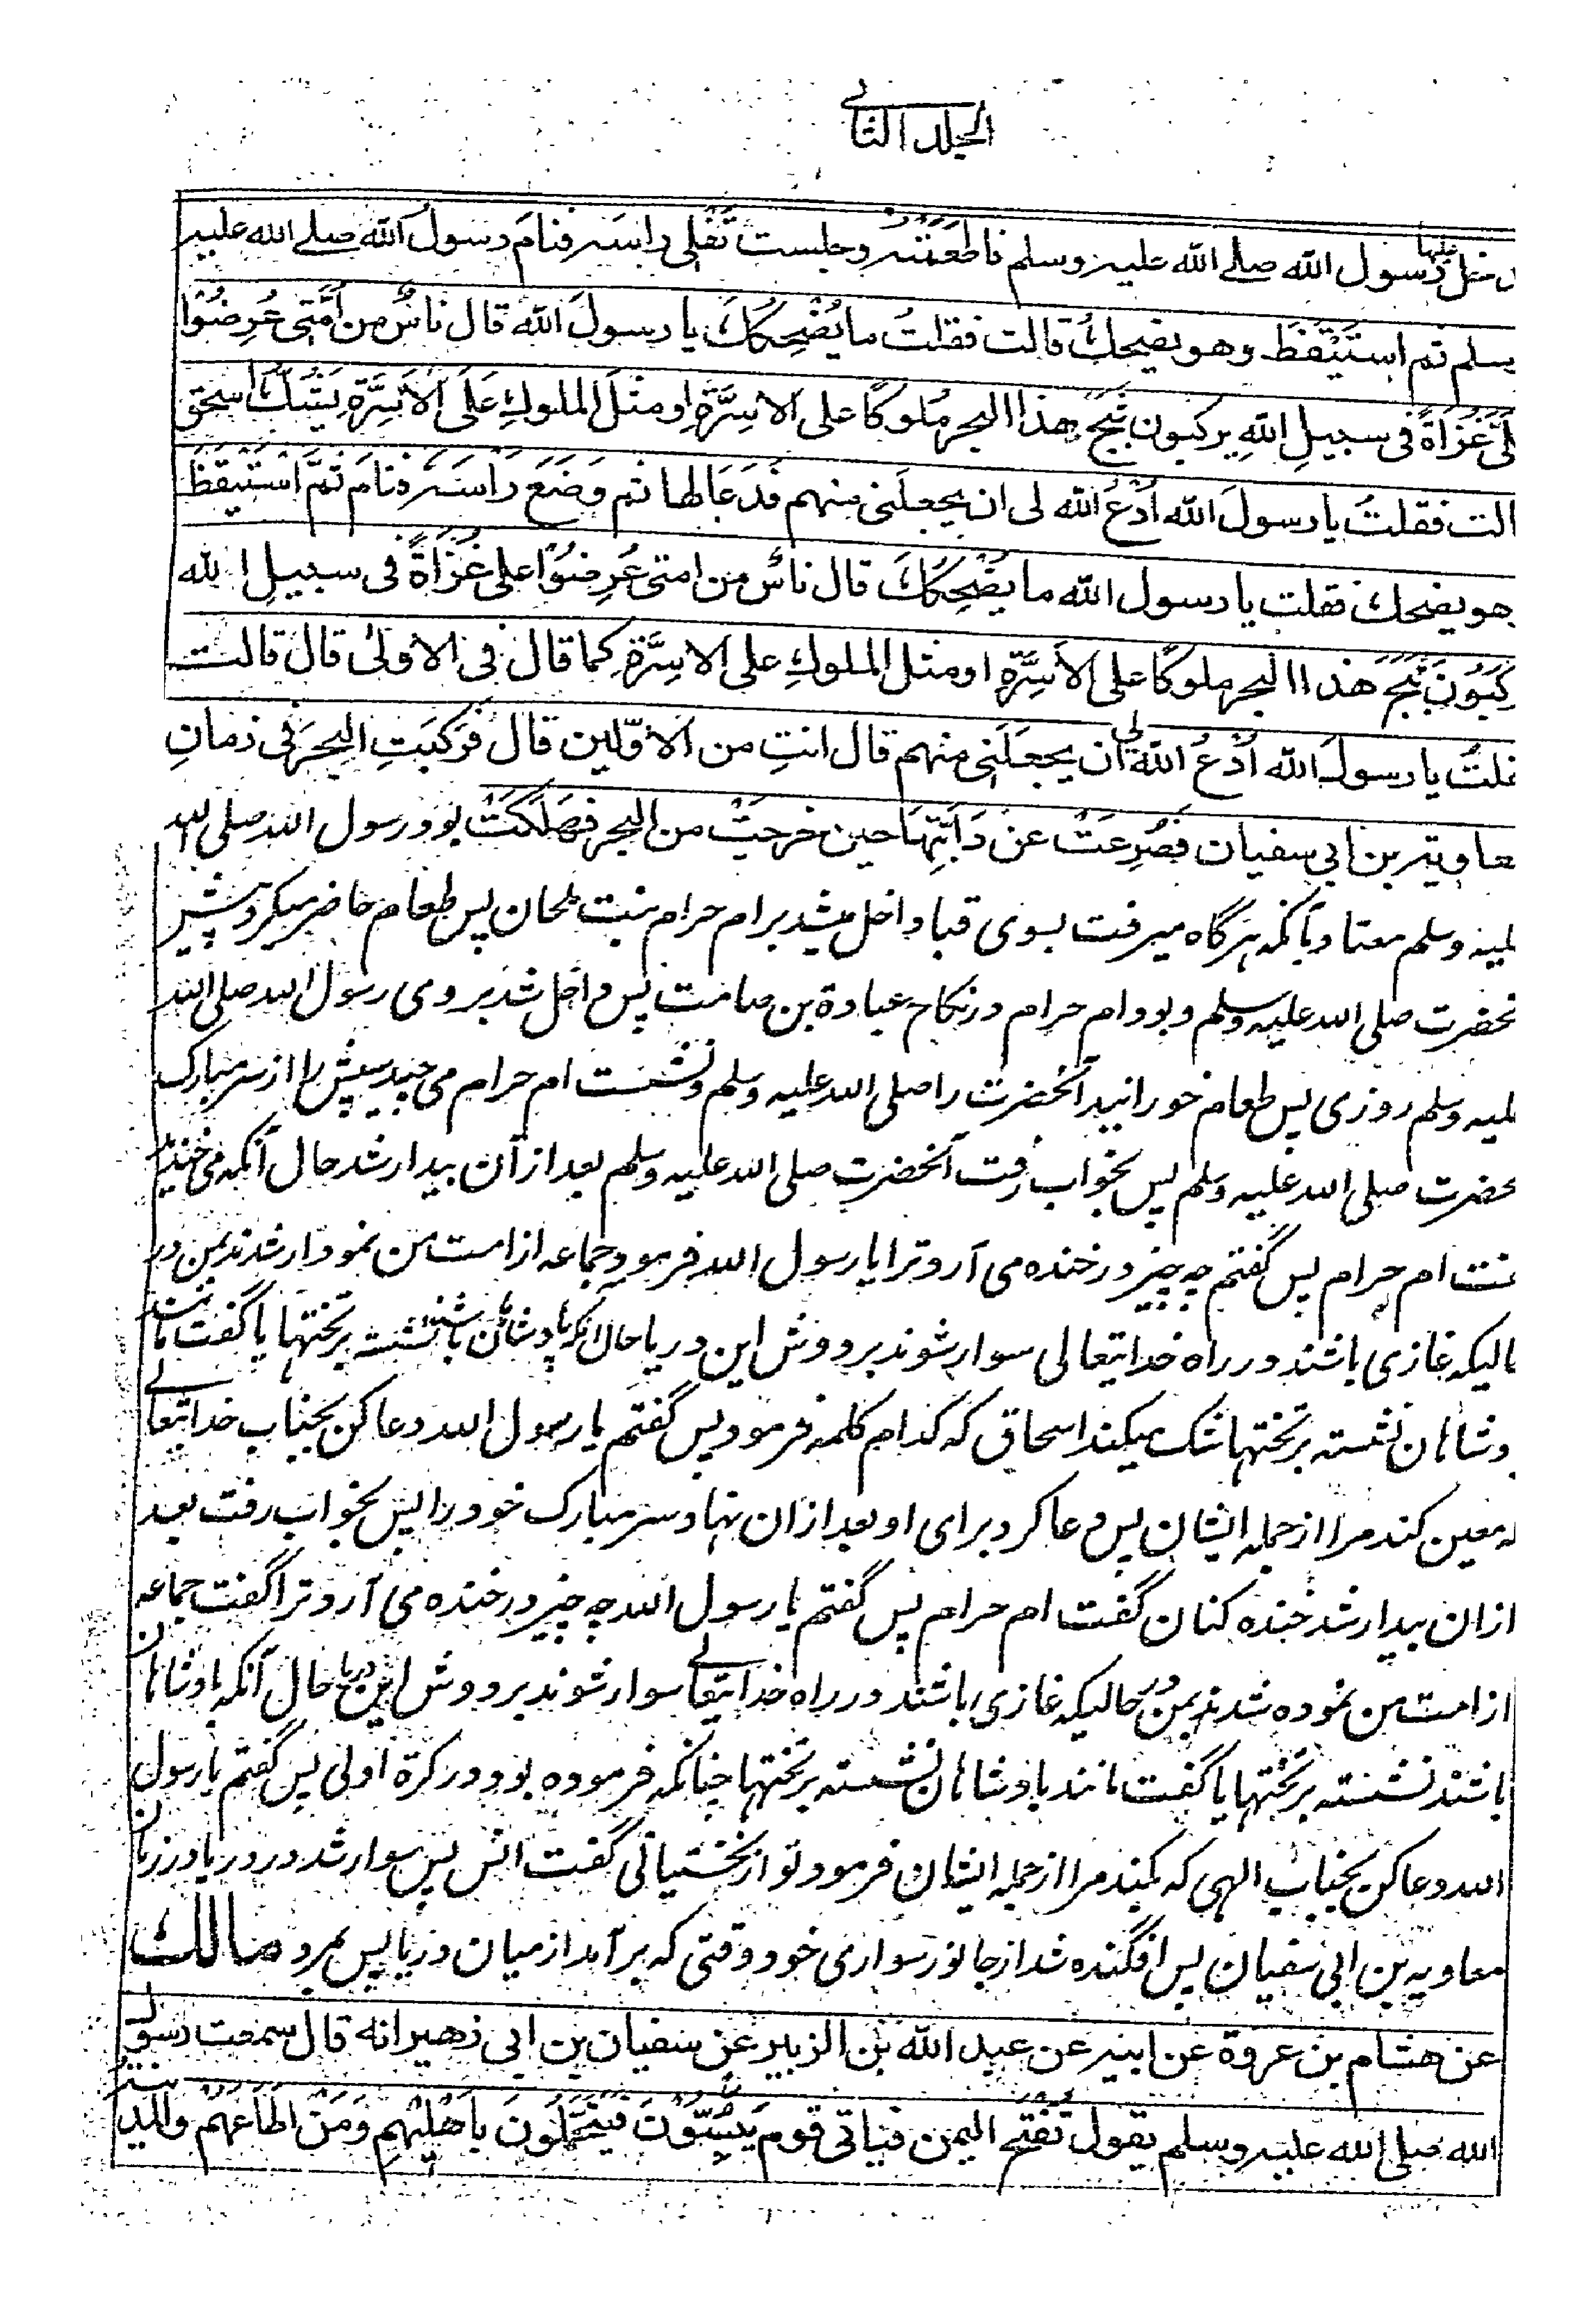 الجلد الثانے
دخل عليها رسول الله صلے الله عليہ وسلم فاطعَمَتْہ وجلست تَفْلِى راسَہ فنامَ رسولُ الله صلے الله عليہ
سلم ثم استَيْقَظَ وهو يضحك قالت فقلتُ ما يُضْحِكُكَ يا رسولَ الله قال ناسٌ من اُمَّتى عُرِضُوْا
لَىَّ غُزَاةً فى سبيلِ اللهِ يركبون ثَبَجَ هذا البحر مُلوكًا على الاسِرَّةِ او مثلَ الملوكِ عَلَى الاَسِرَّةِ يَشُكُّ اسحٰق
الت فقلتُ يا رسولَ الله اُدْعُ الله لى ان يجعلَنى منهم فَدَعَا لها ثم وَضَعَ رَاسَہ فنامَ ثمَّ اسْتَيْقَظَ
هو يضحك فقلت يا رسول الله ما يضْحِكُكَ قال ناسٌ من امتى عُرِضُوْا على غُزَاةً فى سبيلِ الله
كَبُوْنَ ثَبَجَ هَذا البحر ملوكًا على الاَسِرَّةِ او مثل الملوكِ على الاسِرَّةِ كما قال فى الاولىٰ قال قالت
قلتُ يا رسولَ الله اُدْعُ اللهَ لى ان يجعَلَنى منهم قال انتِ من الاوّلين قال فَرَكِبَتِ البحرَ فى زمانِ
معاويۃ بن ابى سفيان فَصُرِعَتْ عن دَابَّتِهَا حين خرجَتْ من البحر فَهَلَكَتْ بود رسول الله صلى الله
ليه وسلم معتاد بآنکہ ہرگاہ میرفت بسوی قبا داخل میشد بر ام حرام بنت ملحان پس طعام حاضر میکرد پیش
نحضرت صلى الله عليه وسلم و بود ام حرام در نکاح عبادة بن صامت پس داخل شد بر وی رسول الله صلى الله
ليه وسلم روزی پس طعام خورانید آنحضرت را صلى الله عليه وسلم و نشست ام حرام می جید سپش را از سر مبارک
حضرت صلى الله عليه وسلم پس بخواب رفت آنحضرت صلى الله عليه وسلم بعد از آن بیدار شد حال آنکہ می خندید
فت ام حرام پس گفتم چہ چیز در خنده می آرد ترا یا رسول الله فرمود جماعہ از امت من نمودار شدند بمن در
الیکہ غازی باشند در راه خدایتعالی سوار شوند بر دوش این دریا حال آنکہ پادشاهان باشند نشستہ بر تختها یا گفت مانند
دشاهان نشستہ بر تختها شک میکند اسحاق کہ کدام کلمہ فرمود پس گفتم یا رسول الله دعا کن بجناب خدایتعالے
کہ معین کند مرا از جملہ ایشان پس دعا کرد برای او بعد ازان نهاد سر مبارک خود را پس بخواب رفت بعد
ازان بیدار شد خنده کنان گفت ام حرام پس گفتم یا رسول الله چہ چیز در خنده می آرد ترا گفت جماعہ
از امت من نموده شدند بمن در حالیکہ غازی باشند در راه خدایتعالے سوار شوند بر دوش این دریا حال آنکہ بادشاهان
باشند نشستہ بر تختها یا گفت مانند بادشاهان نشستہ بر تختها چنانکہ فرموده بود در کرة اولی پس گفتم یا رسول
الله دعا کن بجناب الهی کہ بکند مرا از جملہ ایشان فرمود تو از نخستیانی گفت انس پس سوار شد در دریا در زمان
معاویہ بن ابی سفیان پس افگنده شد از جانور سواری خود وقتی کہ بر آمد از میان دریا پس بمرد مالك
عن هشام بن عروة عن ابيہ عن عبد الله بن الزبير عن سفيان بن ابى زهير انه قال سمعت رسول
الله صلى الله عليہ وسلم يقول تُفْتَح اليمن فياتى قوم يَبُسُّوْنَ فيَتَحَمَّلُونَ باَهْلِيْهِم وَمَنْ اَطَاعَهُمْ والمدينۃ